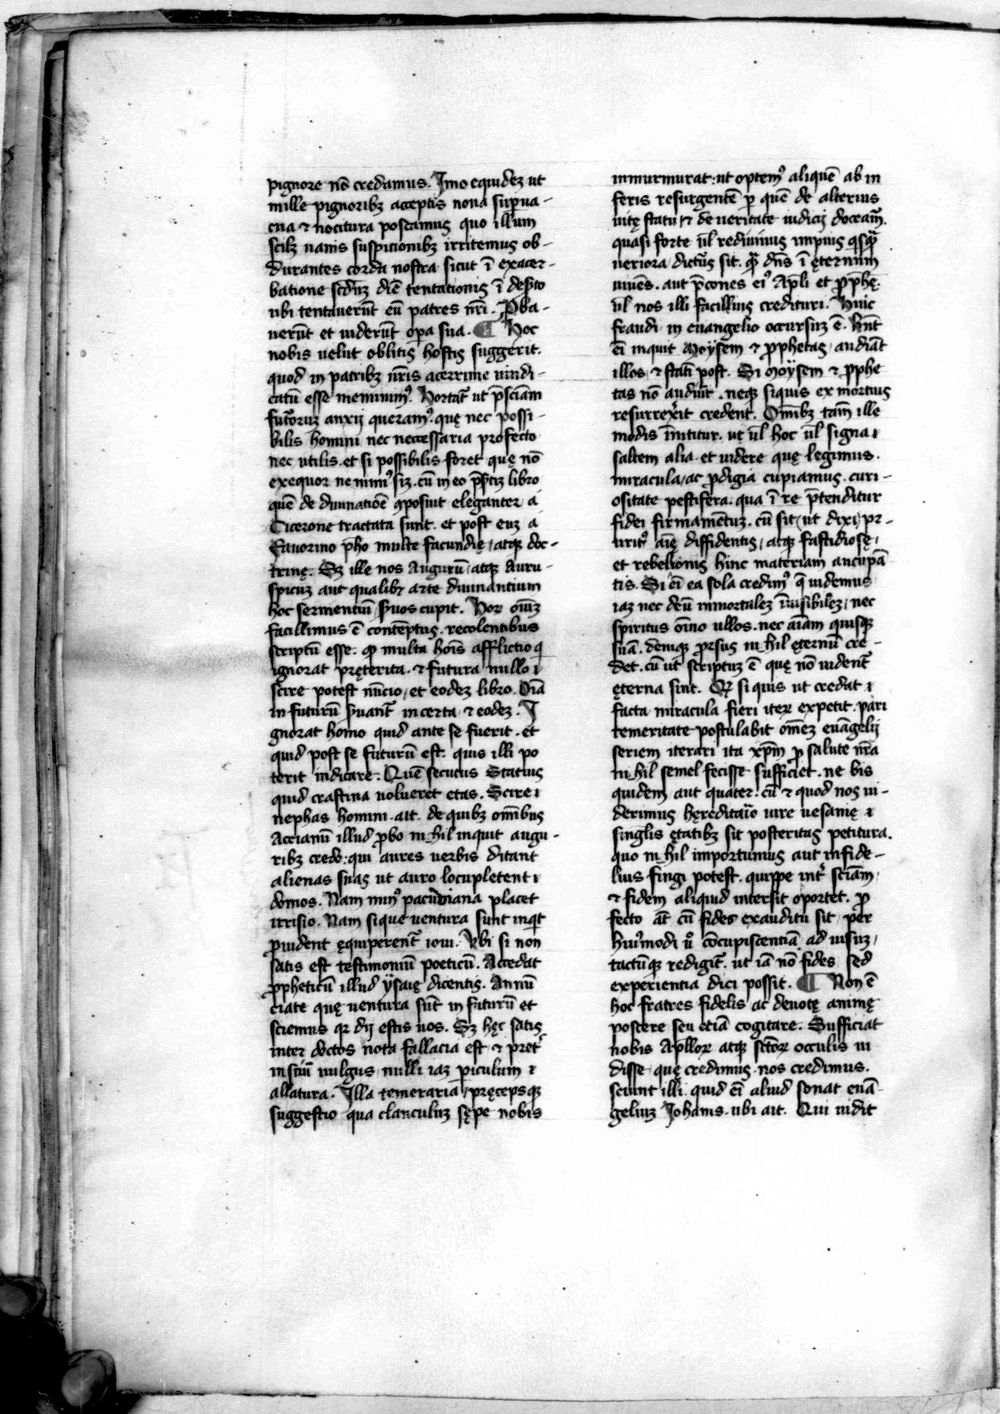 pignore nō credamus. Imo equidez ut
mille pignoribꝫ acceptis noua supua-
cua ⁊ nocitura poscamus quo illum
scilꝫ uanis suspitionibꝫ irritemus ob-
durantes corda nostra sicut ī exacer-
batione scd̄ꝫ diē tentationis ī deẜto
ubi tentauerūt eū patres nr̄i. Pba-
uerūt et uiderūt oꝑa sua. ¶ Hoc
nobis uelut oblitis hostis suggerit.
quod in patribꝫ nr̄is acerrime uindi-
catū esse meminimꝰ. Hortat᷑ ut p̄sciam
futoꝝ anxij queramꝰ. quę nec possi-
bilis homini nec necessaria profecto
nec utilis. et si possibilis foret quę nō
exequor ne nimiꝰ siz. cū in eo p̄stiz libro
quē de diuinatiōe ꝯposuit eleganter a
Cicerone tractata sunt. et post euz a
Fauorino ꝓho multe facundię, atqꝫ doc-
trinę. Sꝫ ille nos Augurū, atqꝫ Auru-
spicuz aut qualibꝫ arte diuinantium
hoc sermentum, suos cupit. Hoꝝ oīuz
facillimus ē contēptus. recolentibus
scriptū esse. qꝫ multa hōis afflictio q
ignorat pręterita. ⁊ futura nullo
scire potest nūcio, et eodez libro. Oīa
in futurū ẜuant᷑ incerta, ⁊ eodez. I
gnorat homo quid ante se fuerit. et
quid post se futurū est. quis illi po
terit indicare. Quē secutus Statius
quid crastina uolueret etas. Scire
nephas homini. ait. de quibꝫ om̄ibus
Accianū illud ꝓbo nihil inquit augu-
ribꝫ credo: qui aures uerbis ditant
alienas suas ut auro locupletent
domos. Nam minꝰ pacuuiana placet
irrisio. Nam si que uentura sunt inqt
ꝓuident ęquiperent᷑ ioui. Ubi si non
satis est testimoniū poeticū. Accedat
ꝓpheticū illud ysaię dicentis. Annū
ciate quę uentura sūt in futurū et
sciemus qꝛ dij estis uos. Sꝫ hęc satis
inter doctos nota fallacia est ⁊ pret᷑
insciū uulgus nulli iaz ꝑiculum
allatura. Illa temeraria, pręcepsqꝫ
suggestio qua clanculuz sępe nobis
inmurmurat: ut optemꝰ aliquē ab in
feris resurgentē ꝑ quē de alterius
uitę statu, ⁊ de ueritate iudicij doceam᷑.
quasi forte ul̄ rediuiuus impius qsqꝫ
ueriora dictus sit. qꝫ dn̄s ī ęternum
uiuēs. aut p̄cones eiꝰ Apl̄i et ꝓphę.
ul̄ nos illi facilius credituri. Huic
fraudi in euangelio occursuz ē. Hn̄t
eī inquit Moysem ⁊ ꝓphetas, audiāt
illos, ⁊ statī post. Si Moysem ⁊ ꝓphe
tas nō audiūt. neqꝫ siquis ex mortuis
resurrexit credent. Om̄ibꝫ tam̄ ille
modis īnititur. ut ul̄ hoc ul̄ signa
saltem alia. et uidere quę legimus.
miracula, ac ꝓdigia cupiamus. curi-
ositate pestifera. qua ī re p̄tenditur
fidei firmamētuz. cū sit, ut dixi, pr-
urit᷑ aię diffidentis, atqꝫ fastidiosę,
et rebelionis hinc materiam aucupā
tis. Si eī ea sola credimꝰ q̄ uidemus
iaz nec deū inmortalez īuisibilez, nec
spiritus oīno ullos. nec aīam quisqꝫ
suā. deniqꝫ ꝓrsus nihil ęternū cre-
det. cū ut scriptuz ē quę nō uident᷑
ęterna sint. Qꝫ si quis ut credat
facta miracula fieri iteꝝ expetit. pari
temeritate postulabit om̄ez euāgelij
seriem iterari ita xp̄m ꝑ salute nr̄a
nihil semel fecisse sufficiet. ne bis
quidem aut quater. cū ⁊ quod nos ui-
derimus hęreditaīo iure uesanię
singlis ętatibꝫ sit posteritas petitura.
quo nihil importunius aut infide-
lius fingi potest. quippe int᷑ sciam,
⁊ fidem aliquid intersit oportet. ꝓ
fecto at̄ cū fides exauditu sit, per
huiꝰmodi u̇ cōcupiscentiā ad uisuz,
tactūqꝫ redigit᷑. ut iā nō fides sed
experientia dici possit. ¶ Non ē
hoc fratres fidelis ac deuotę animę
poscere seu etiā cogitare. Sufficiat
nobis Apl̄loꝝ atqꝫ sc̄toꝝ occulis ui
disse. quę credimus. nos credimus.
sciunt illi. quid eī aliud sonat euā-
geliuz Iohanis. ubi ait. Qui uidit